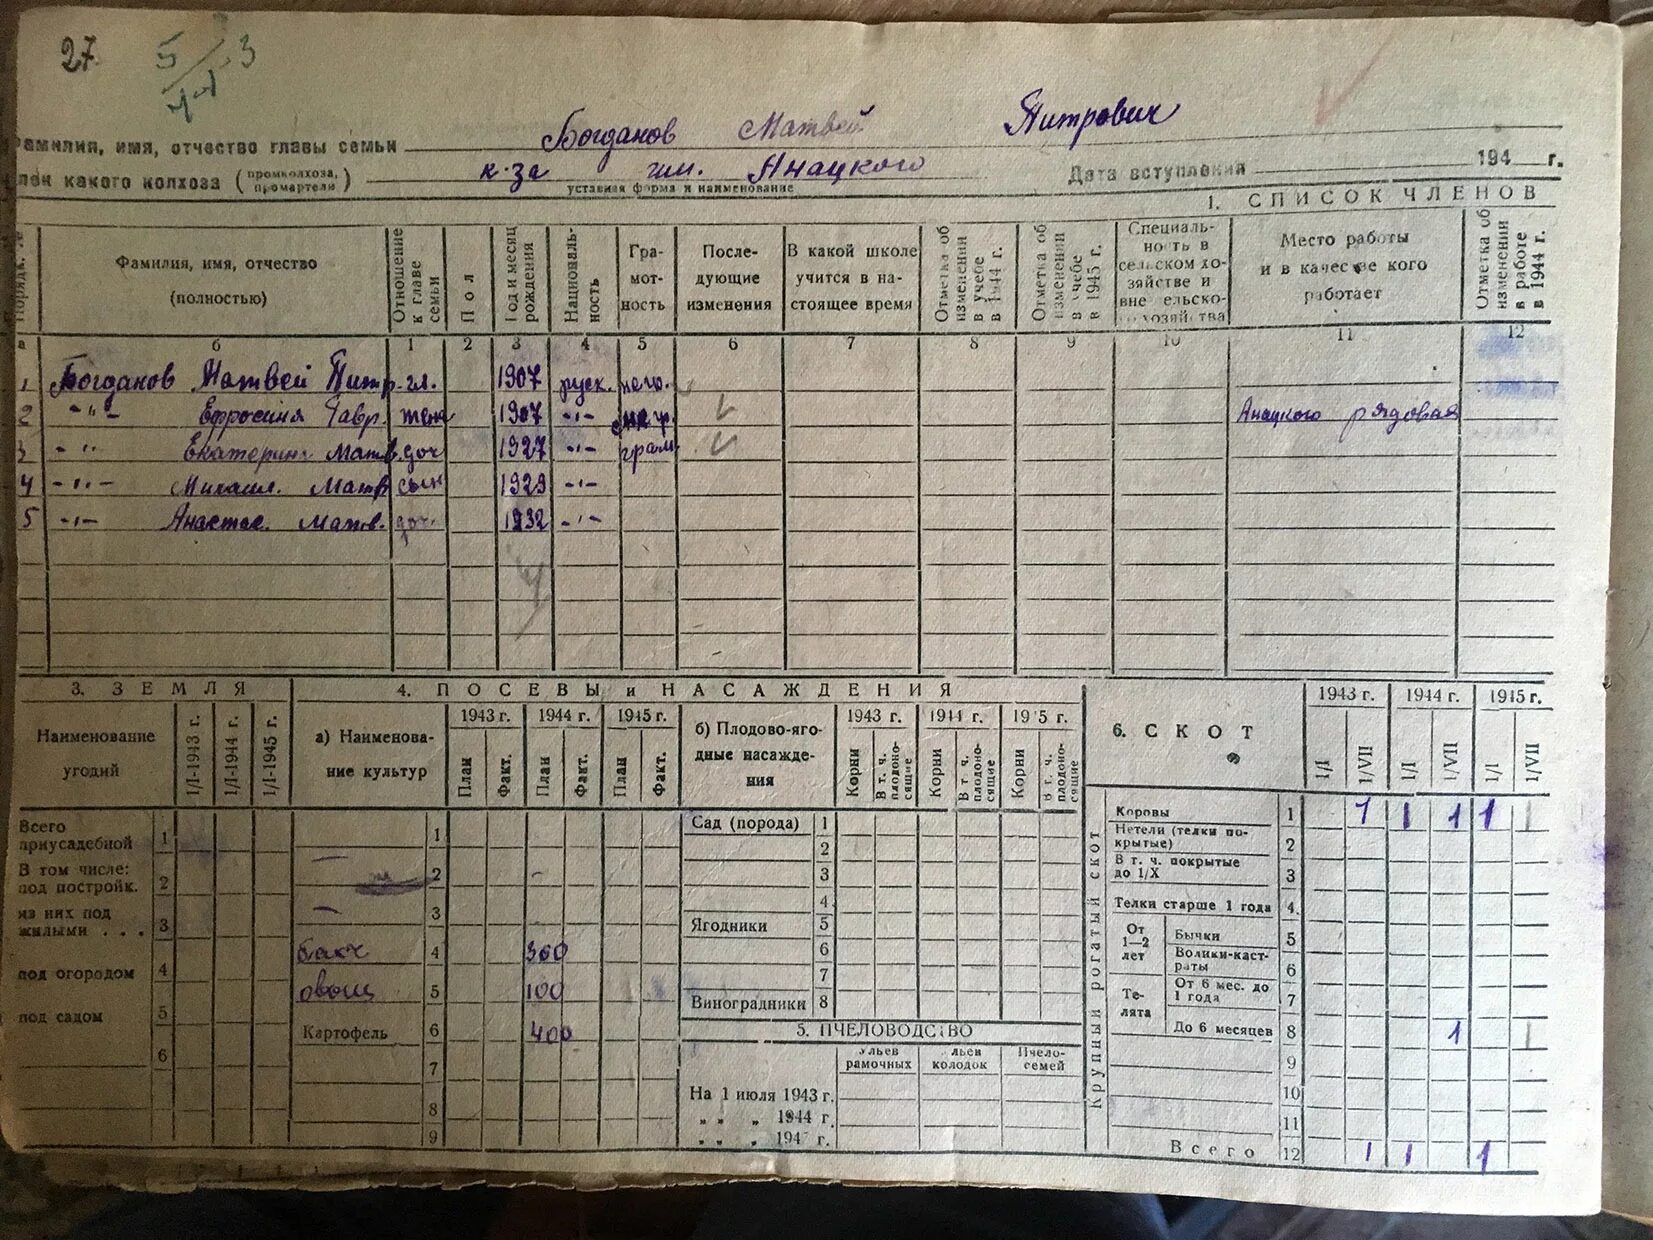 27
5 3
Фамилия, имя, отчество главы семьи Богданов Матвей Питрович
Член какого колхоза (промколхоза, промартели) к-за им. Анацкого Дата вступления 194 г.
уставная форма и наименование
1. СПИСОК ЧЛЕНОВ
Порядк. № Фамилия, имя, отчество (полностью) Отношение к главе семьи Пол Год и месяц рождения Национальность Грамотность Последующие изменения В какой школе учится в настоящее время Отметка об изменении в учебе в 1944 г. Отметка об изменении в учебе в 1945 г. Специальность в сельском хозяйстве и вне сельского хозяйства Место работы и в качестве кого работает Отметка об изменении в работе в 1944 г.
а б 1 2 3 4 5 6 7 8 9 10 11 12
1 Богданов Матвей Питр. гл. 1907 руск. негр.
2 -"- Ефросиня Гавр. жена 1907 -"- Анацкого рядовая
3 -"- Екатерина Матв. доч 1927 -"- грам
4 -"- Михаил. Матв сын 1929 -"-
5 -"- Анастас. Матв. доч. 1932 -"-
3. ЗЕМЛЯ 4. ПОСЕВЫ и НАСАЖДЕНИЯ
Наименование угодий 1/I-1943 г. 1/I-1944 г. 1/I-1945 г.
а) Наименование культур 1943 г. 1944 г. 1945 г.
План Факт. План Факт. План Факт.
б) Плодово-ягодные насаждения 1943 г. 1944 г. 1945 г.
Корни В т. ч. плодоносящие Корни В т. ч. плодоносящие Корни В т. ч. плодоносящие
6. СКОТ 1943 г. 1944 г. 1945 г.
1/I 1/VII 1/I 1/VII 1/I 1/VII
Всего приусадебной 1
В том числе: под постройк. 2
из них под жилыми . . . 3
под огородом 4
под садом 5
6
1
2
3
бахч 4 360
овощ 5 100
Картофель 6 400
7
8
9
Сад (порода) 1
2
3
4
Ягодники 5
6
7
Виноградники 8
5. ПЧЕЛОВОДСТВО
Ульев рамочных Ульев колодок Пчелосемей
На 1 июля 1943 г.
" " " 1944 г.
" " " 1945 г.
Крупный рогатый скот
Коровы 1 1 1 1 1 1
Нетели (телки покрытые) 2
В т. ч. покрытые до 1/X 3
Телки старше 1 года 4
От 1—2 лет Бычки 5
Волики-кастраты 6
Телята От 6 мес. до 1 года 7
До 6 месяцев 8 1 1
9
10
11
Всего 12 1 1 1